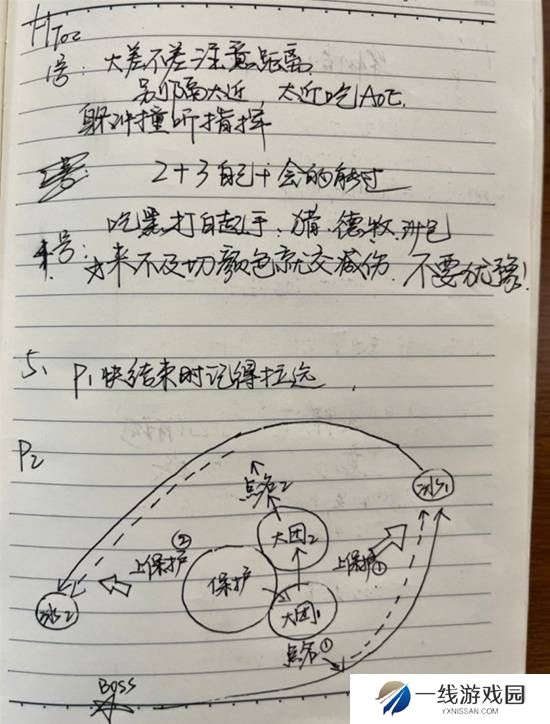 HToc
1号：大差不差注意距离
别隔太近，太近吃AoE.
躲冲撞听指挥
2+3自己会的能过
吃黑打白起手、猎、德牧
4号：来不及切颜色就交减伤.不要犹豫!
5、P1快结束时记得拉远
P2
点名2
冰1
大团2
②
上保护
保护
上保护①
冰2
大团1
点名①
BOSS
一线游戏园
YXNISSAN.COM